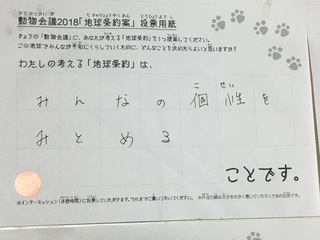 動物会議2018「地球条約案」投票用紙
きょうの「動物会議」に、あなたが考える「地球条約」を1つ提案してください。
この地球でみんなが平和にくらしていくために、どんなことを決めたらよいと思いますか。
わたしの考える「地球条約」は、
みんなの個性を
みとめる
ことです。